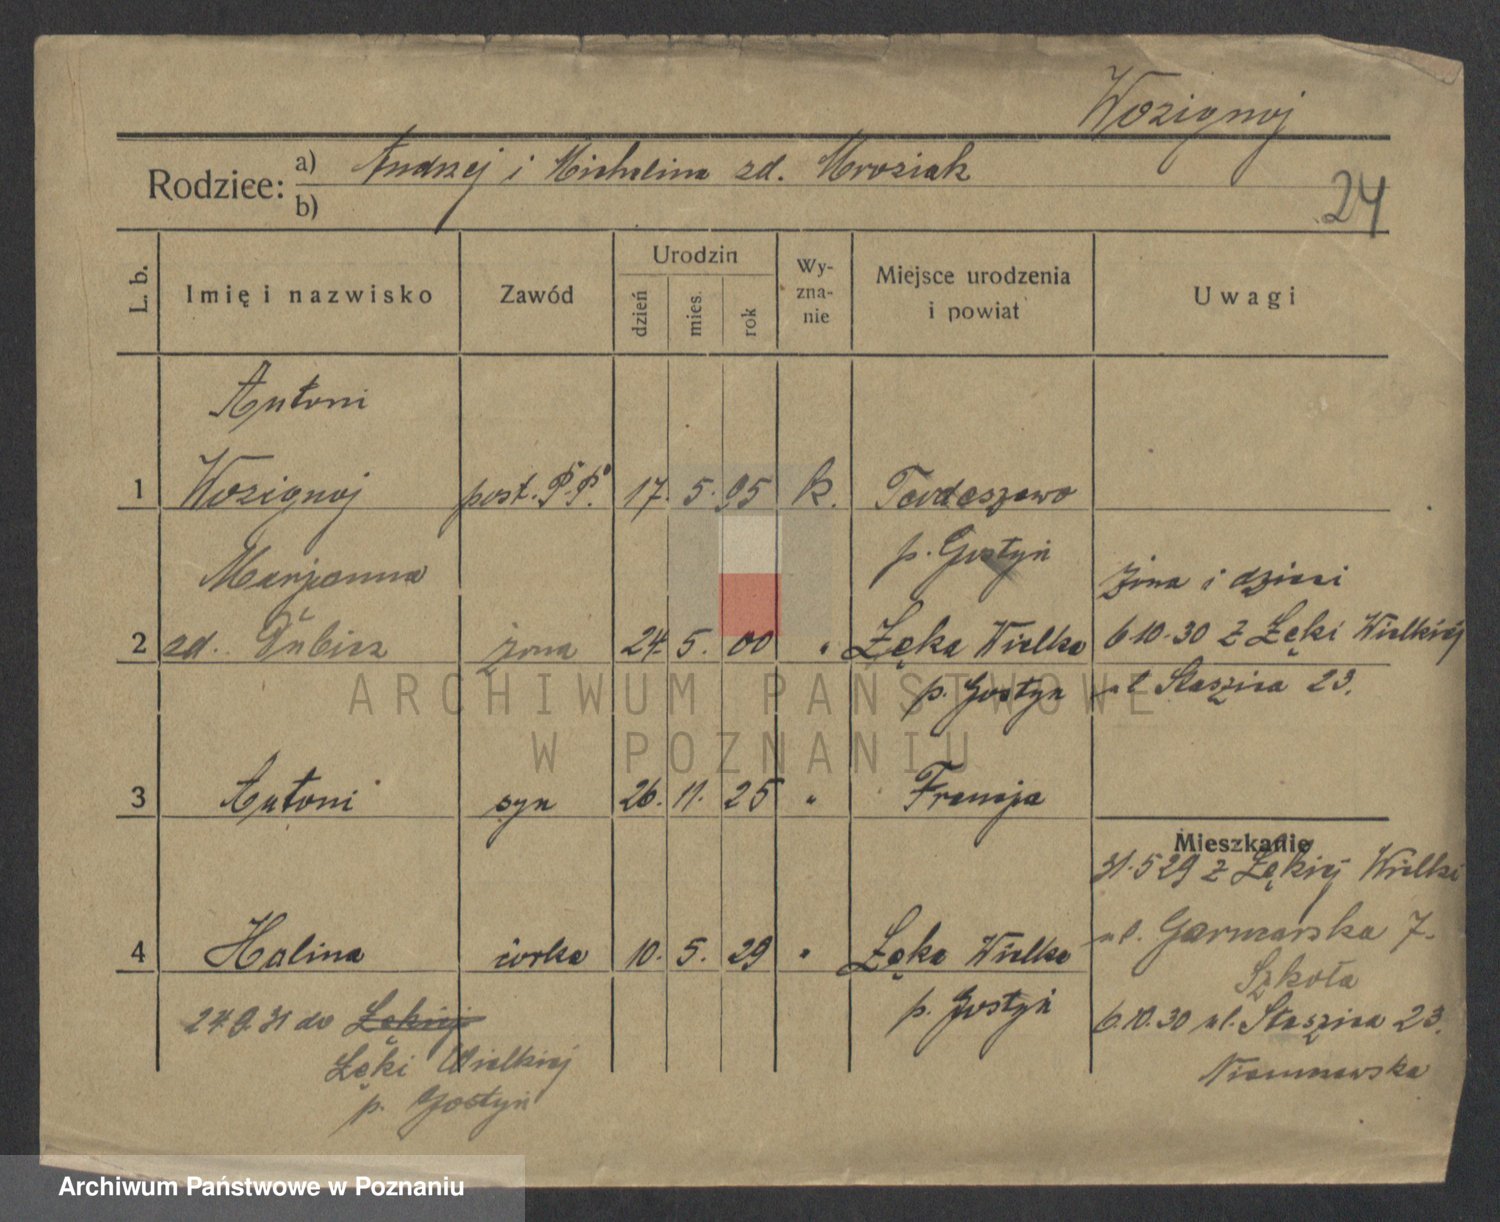 Wozignoj
Rodzice: a) Andrzej i Michalina zd. Mroziak
b)
24
L. b. Imię i nazwisko Zawód Urodzin dzień mies. rok Wyznanie Miejsce urodzenia i powiat Uwagi
Antoni
1 Wozignoj post. P.P. 17. 5. 95 k.
p. Gostyń
Marjanna
żona i dzieci
2 zd. żona 24. 5. 00 " Łęka Wielka 6.10.30 z Łęki Wielkiej
p. Gostyń ul. Staszica 23.
3 Antoni syn 26. 11. 25 " Francja
Mieszkanie
31.5 29 z Łękiej Wielki
ul. Garncarska 7.
4 Halina córka 10. 5. 29 " Łęka Wielka
Szkoła
p. Gostyń 6.10.30 ul. Staszica 23.
24.9.31 do Łękiej
Łęki Wielkiej
p. Gostyń
ARCHIWUM PAŃSTWOWE
W POZNANIU
Archiwum Państwowe w Poznaniu